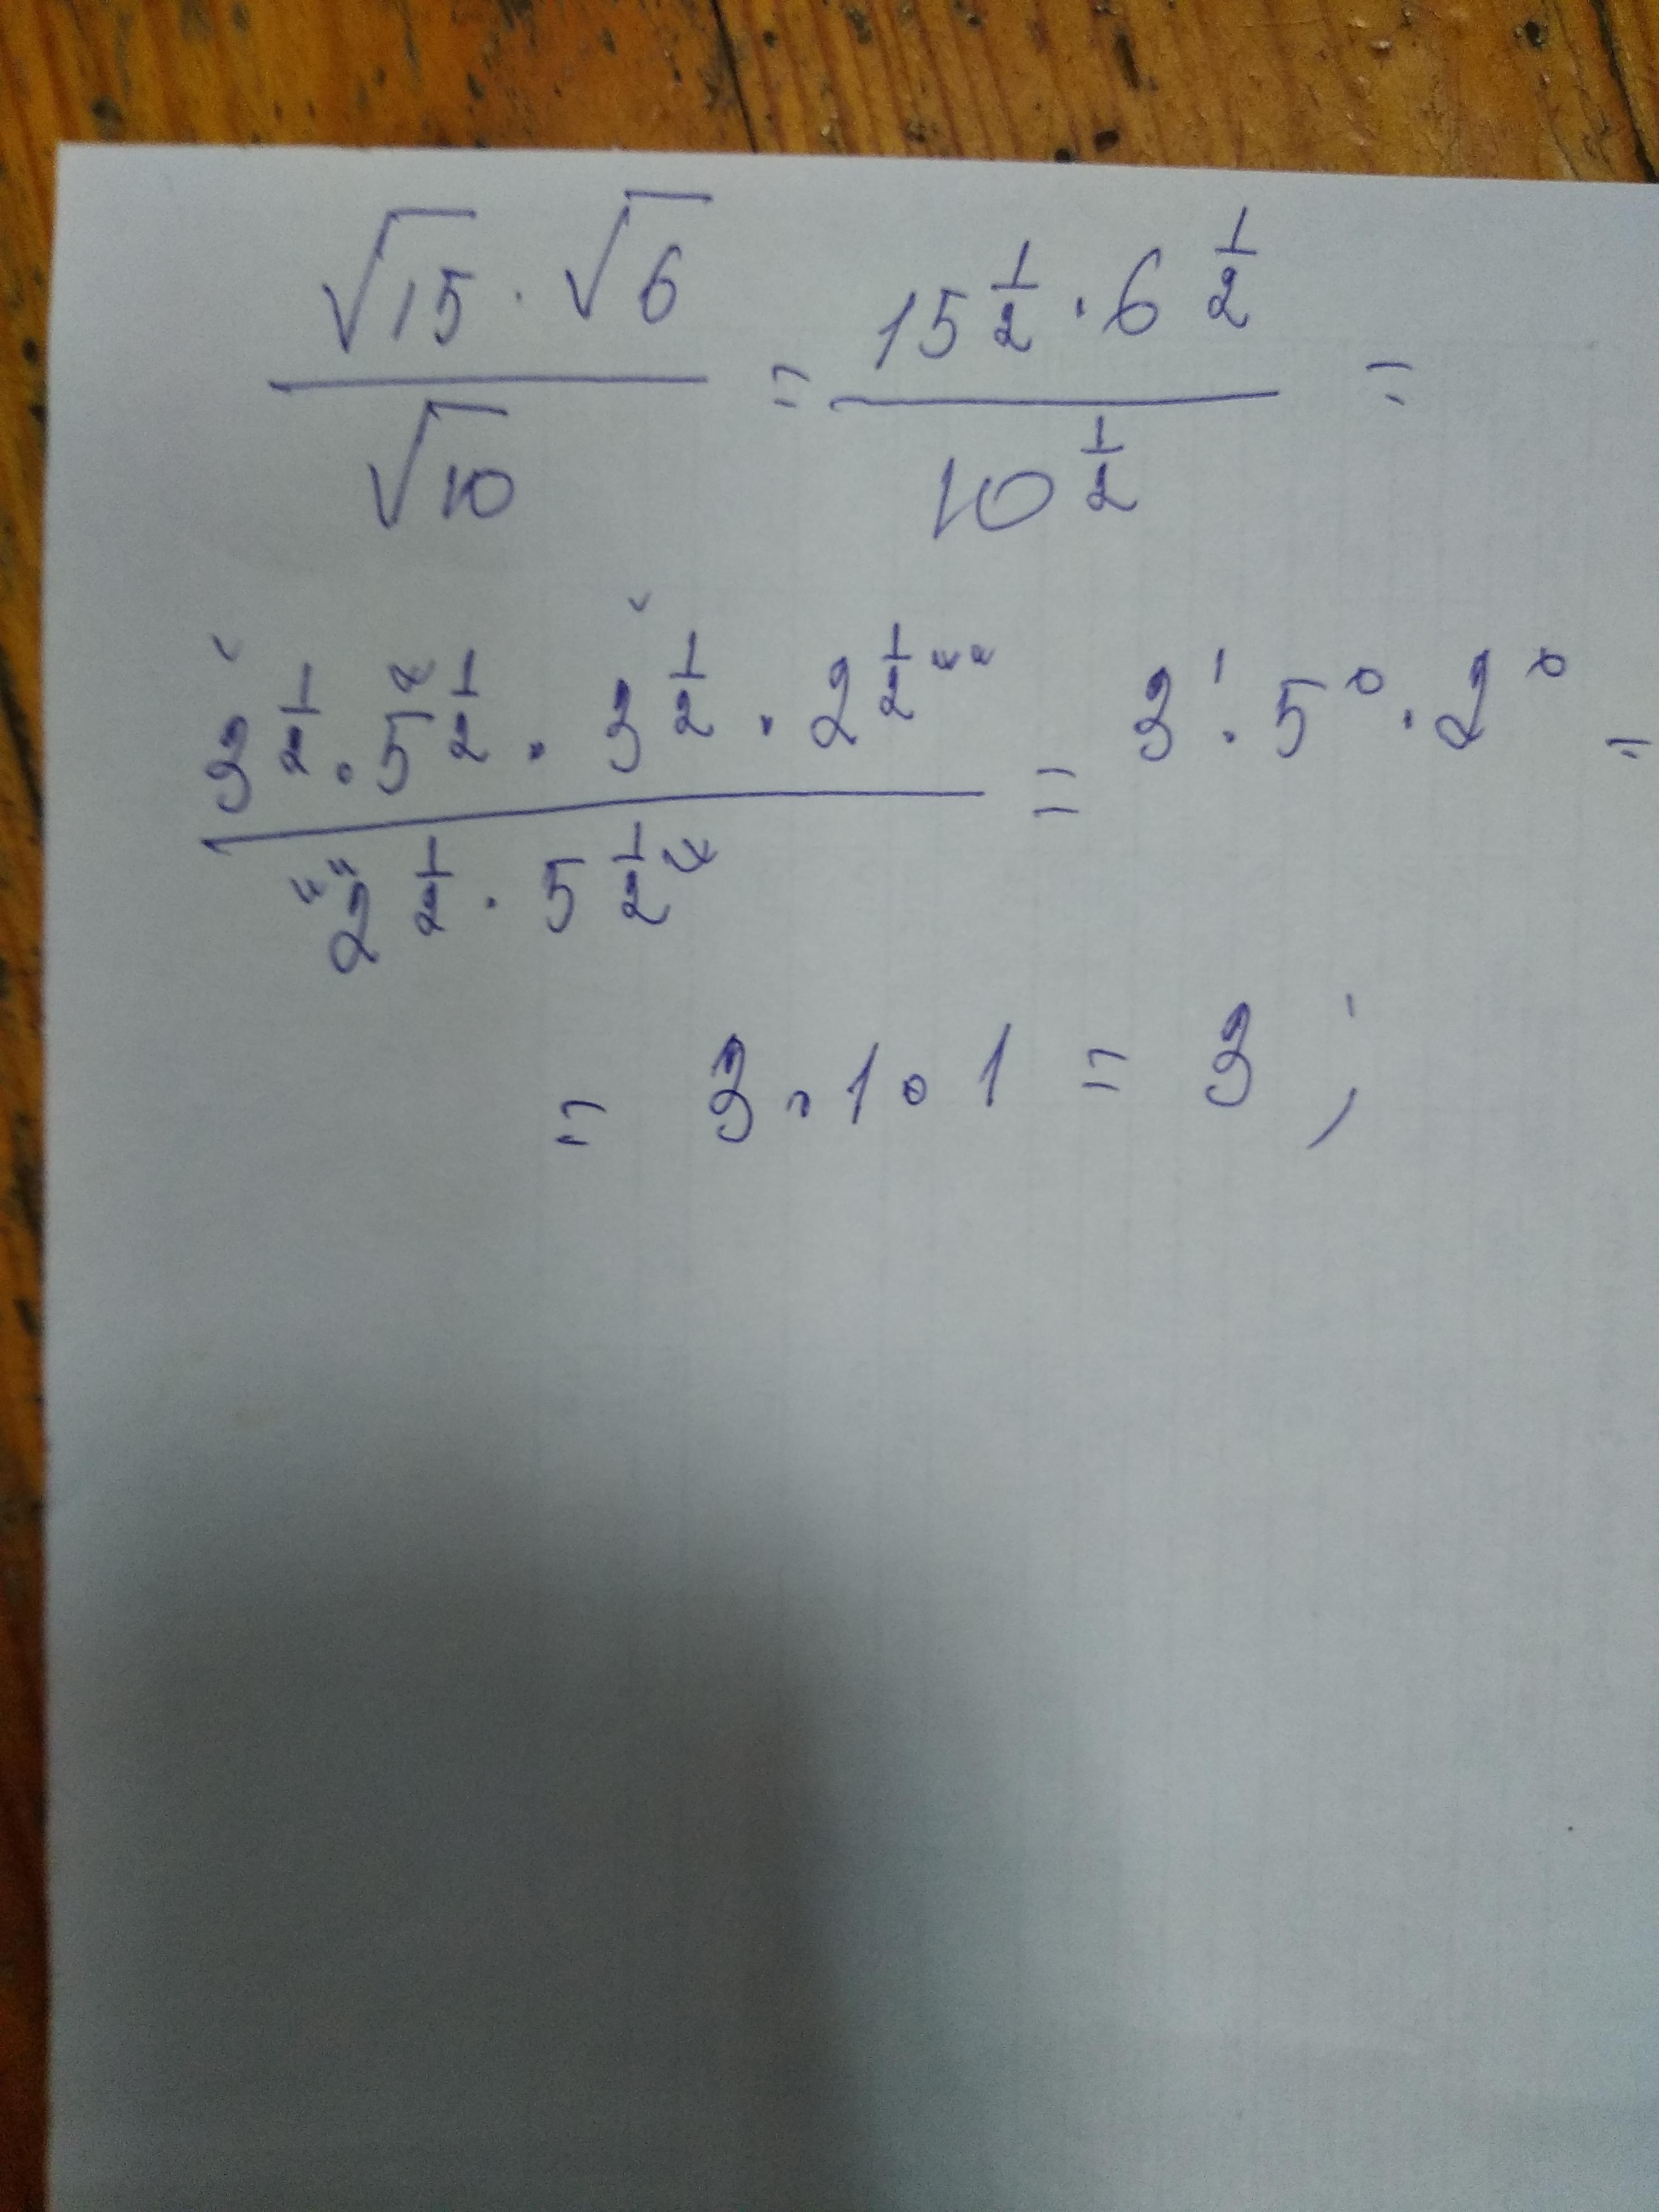 √15 · √6 / √10 = 15^(1/2) · 6^(1/2) / 10^(1/2) =
3^(1/2) · 5^(1/2) · 3^(1/2) · 2^(1/2) / 2^(1/2) · 5^(1/2) = 3^1 · 5^0 · 2^0 =
= 3 · 1 · 1 = 3 ;